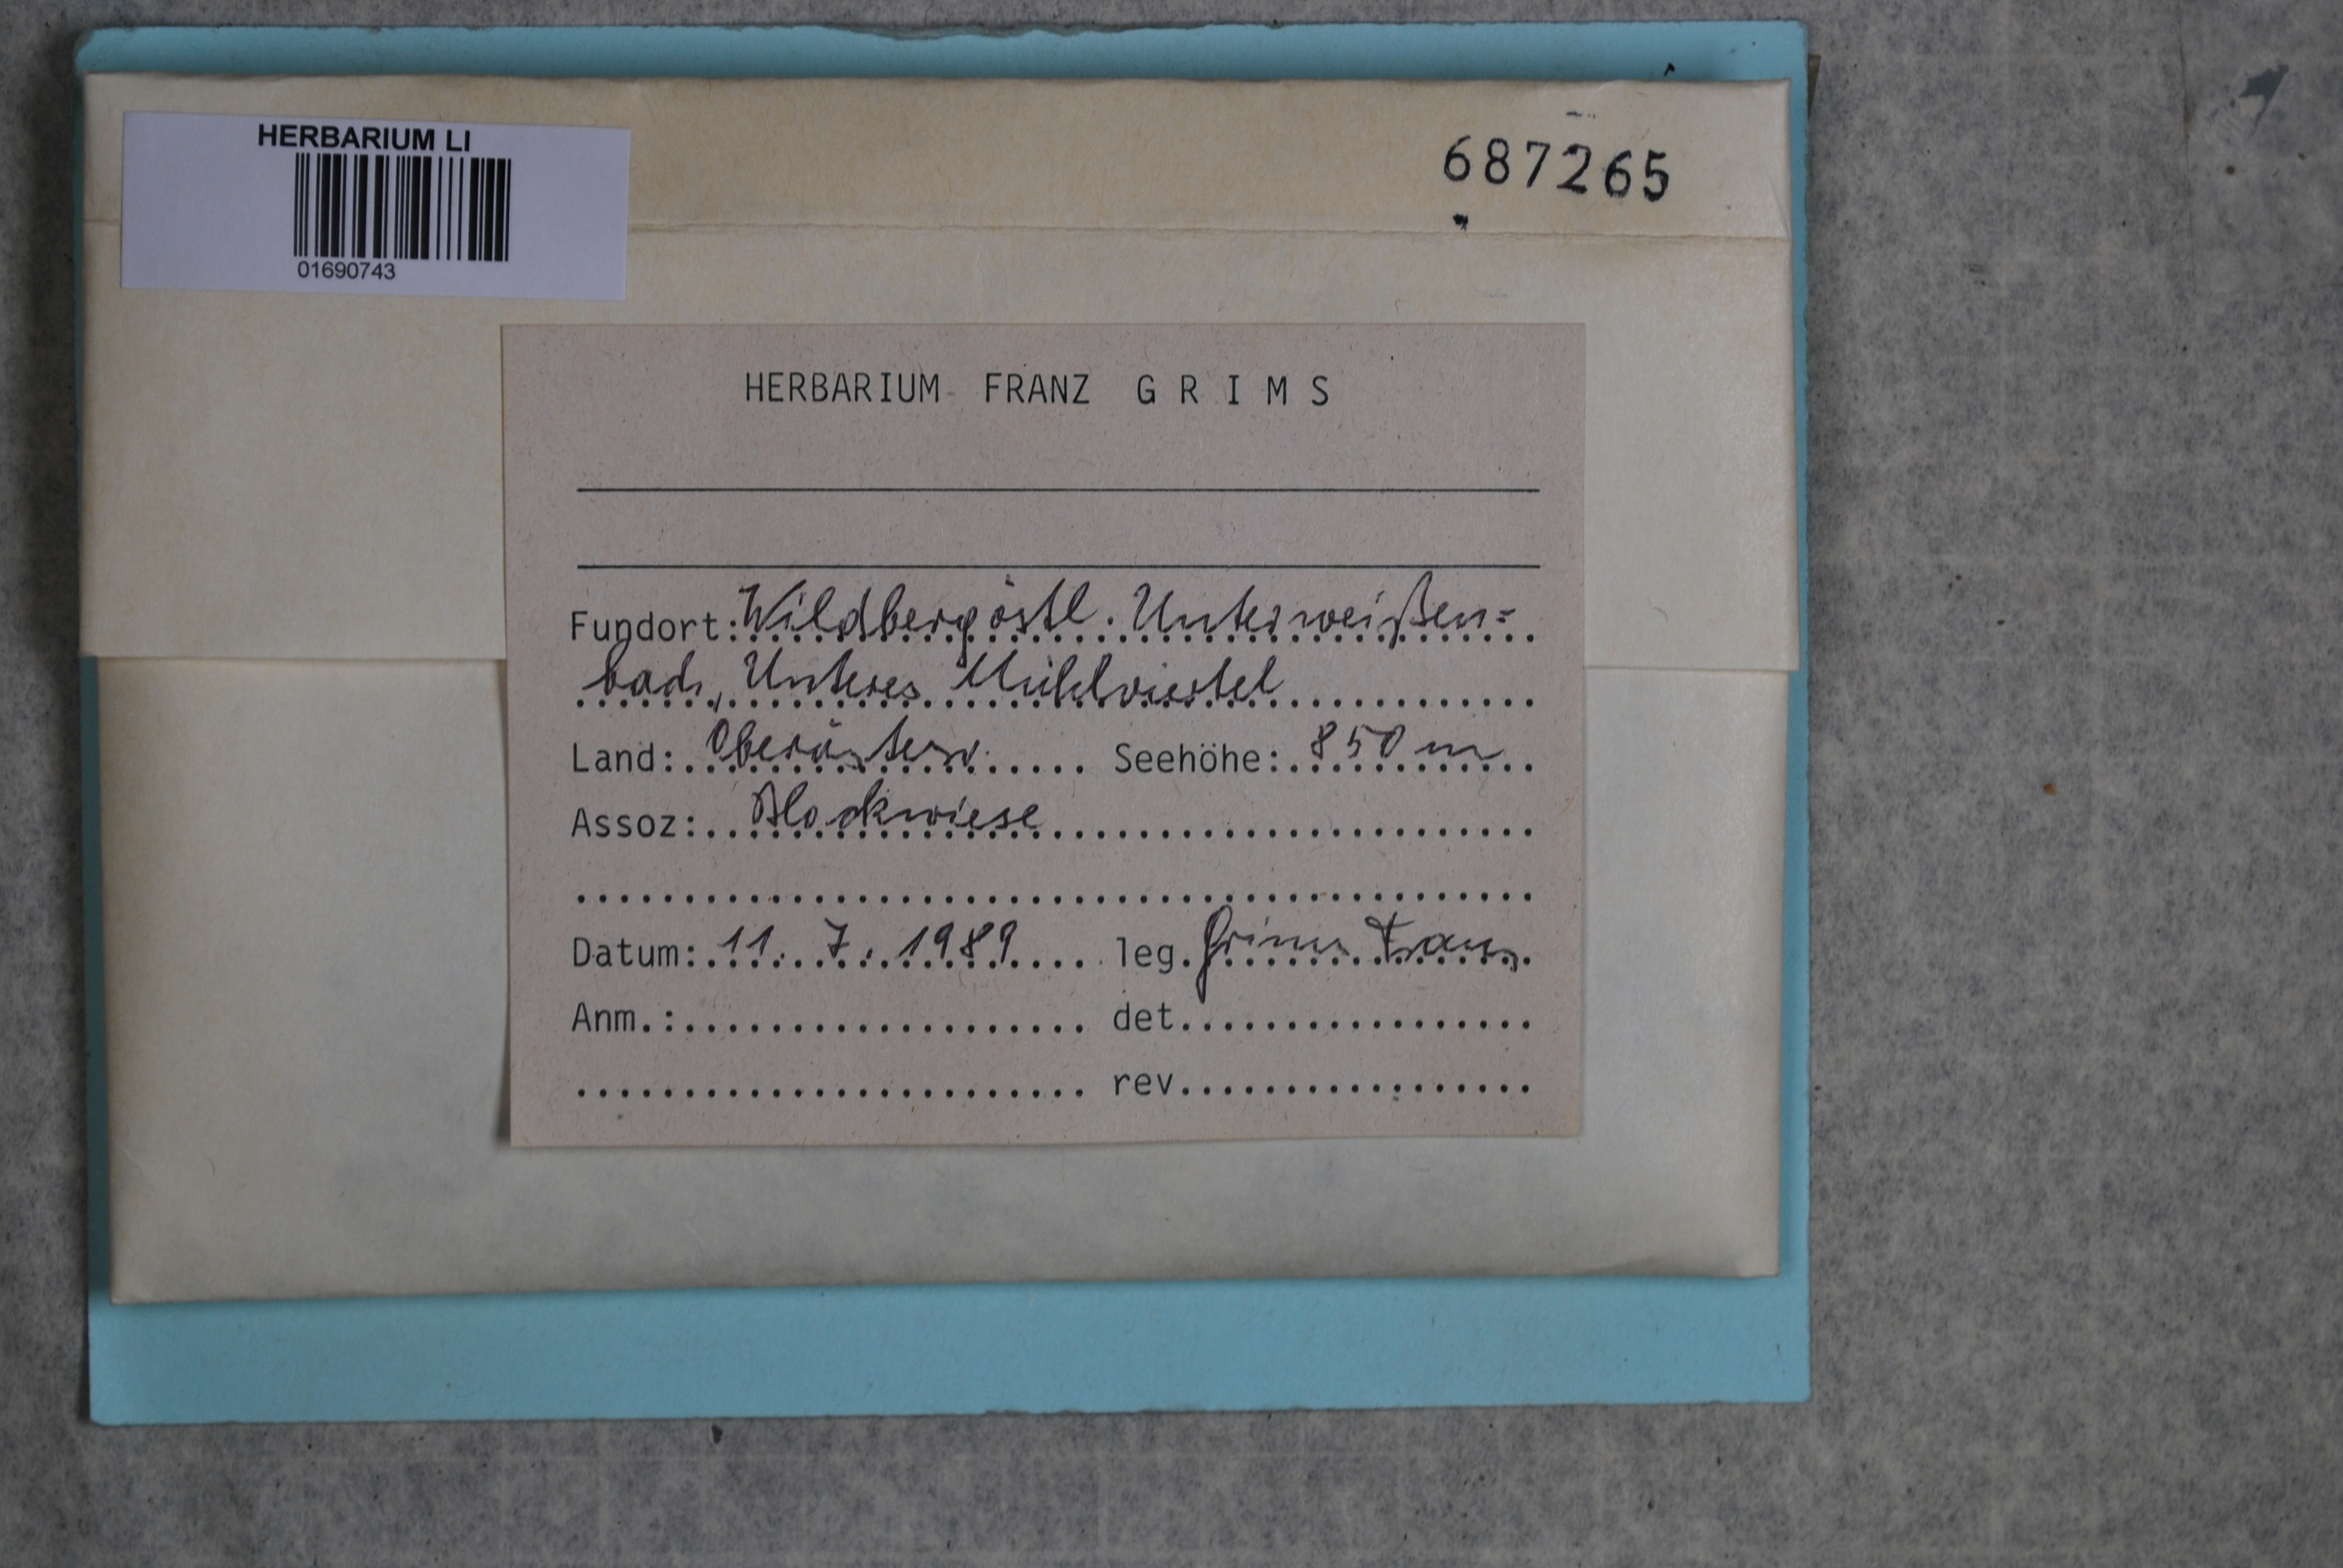 HERBARIUM LI
01690743
687265
HERBARIUM FRANZ GRIMS
Fundort: Wildberg östl. Unterweißen=
bach, Unteres Mühlviertel
Land: Oberösterr. Seehöhe: 850 m
Assoz: Blockwiese
Datum: 11. 7. 1989 leg. Grims Franz
Anm.: det.
rev.